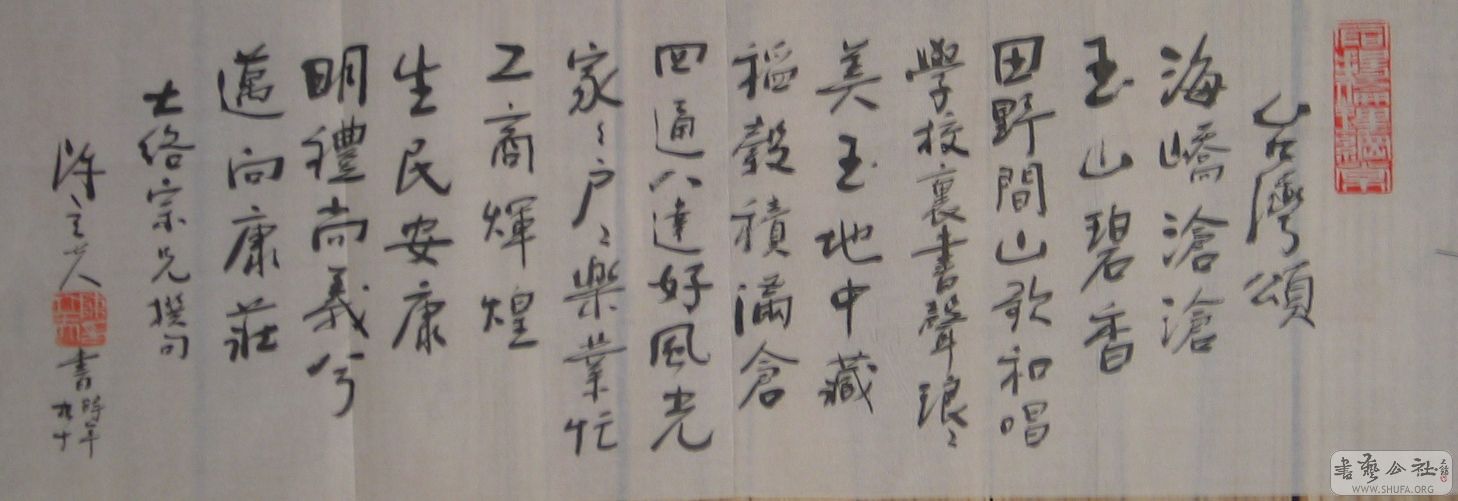 台灣頌
海嶠滄滄
玉山碧香
田野間山歌和唱
學校裏書聲琅〻
美玉地中藏
稻穀積滿倉
四通八達好風光
家〻户〻樂業忙
工商輝煌
生民安康
明禮尚義兮
邁向康莊
士給宗兄撰句
陳立夫
書時年
九十
書藝公社
WWW.SHUFA.ORG